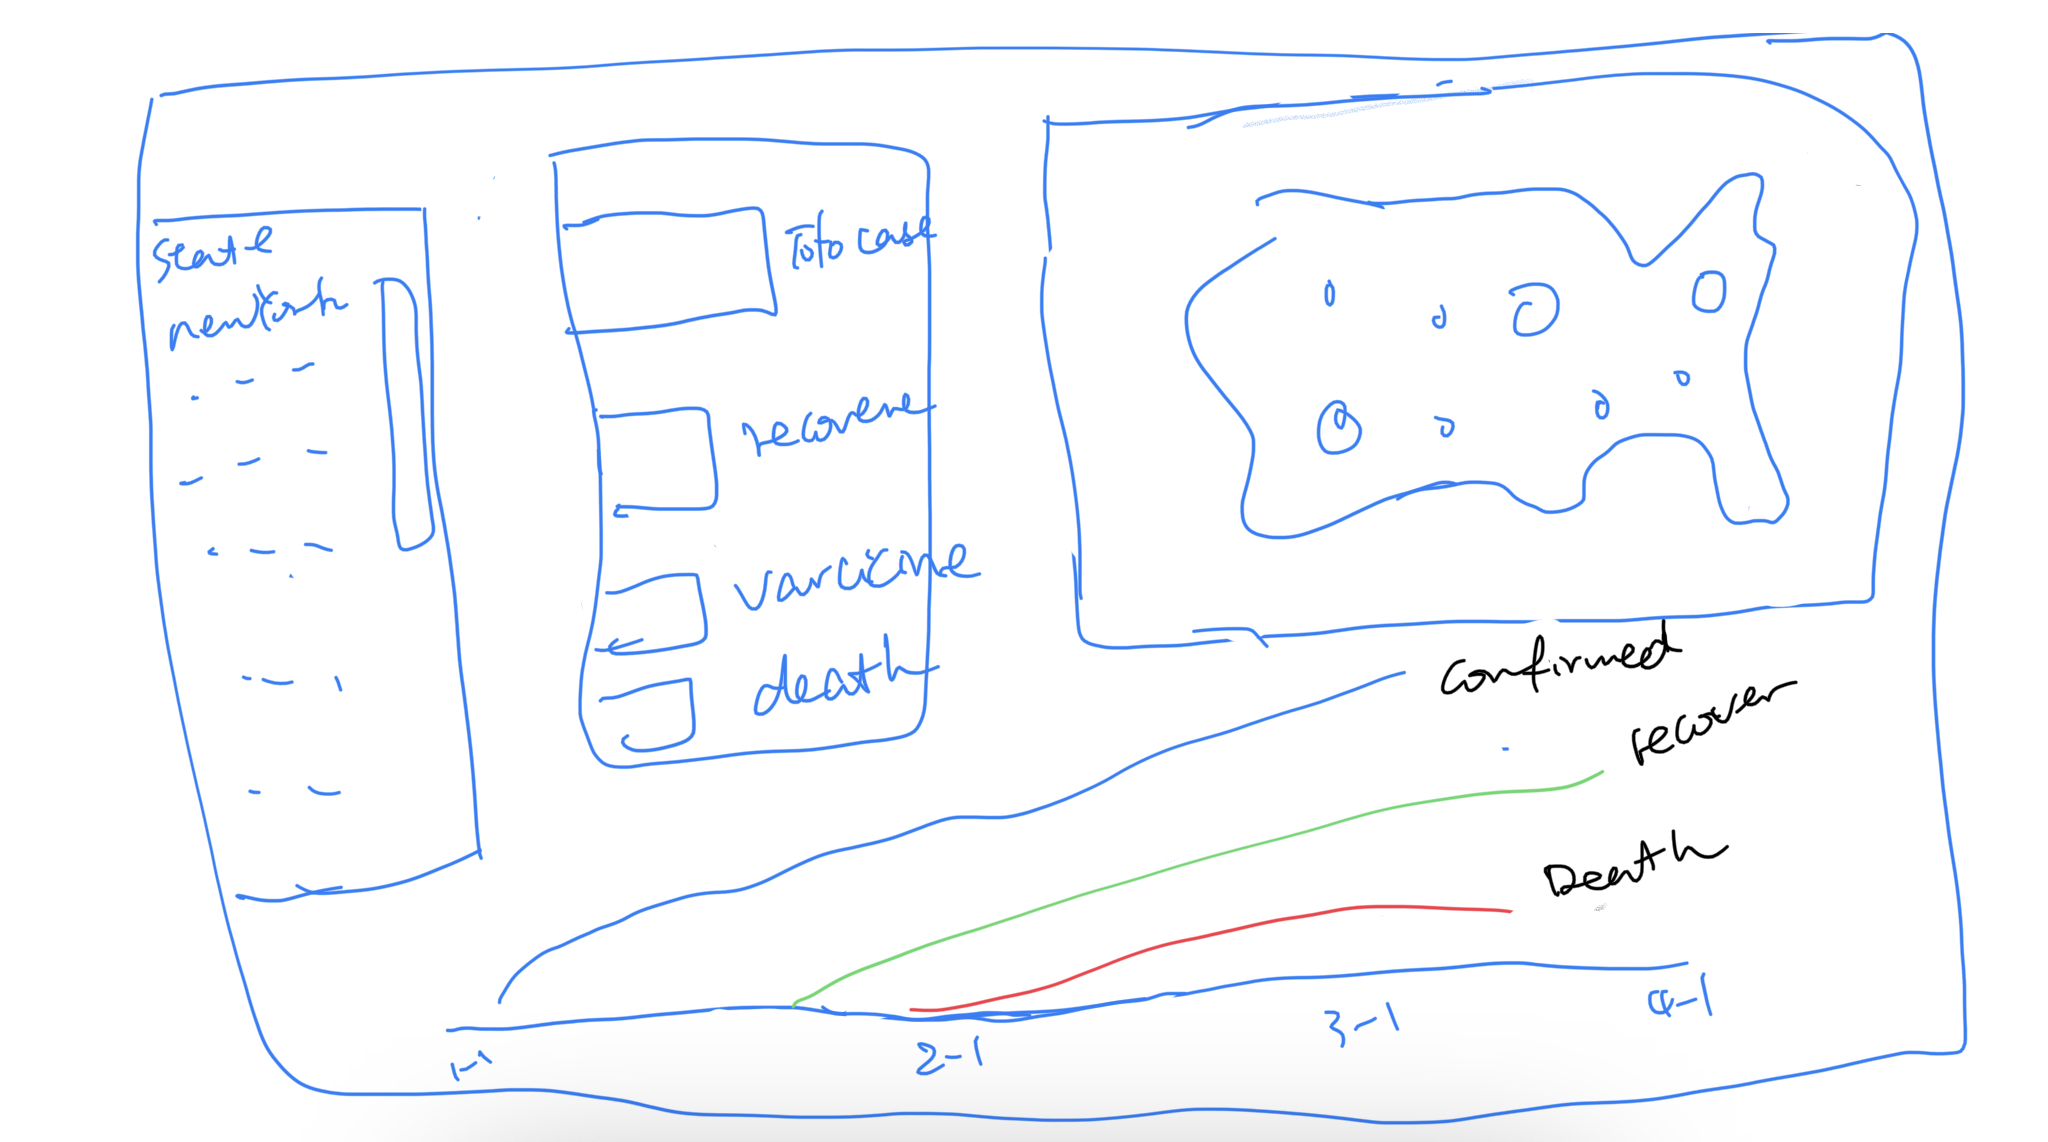 State
newYork
Toto case
recovere
varcicine
death
Confirmed
recover
Death
1-1
2-1
3-1
4-1